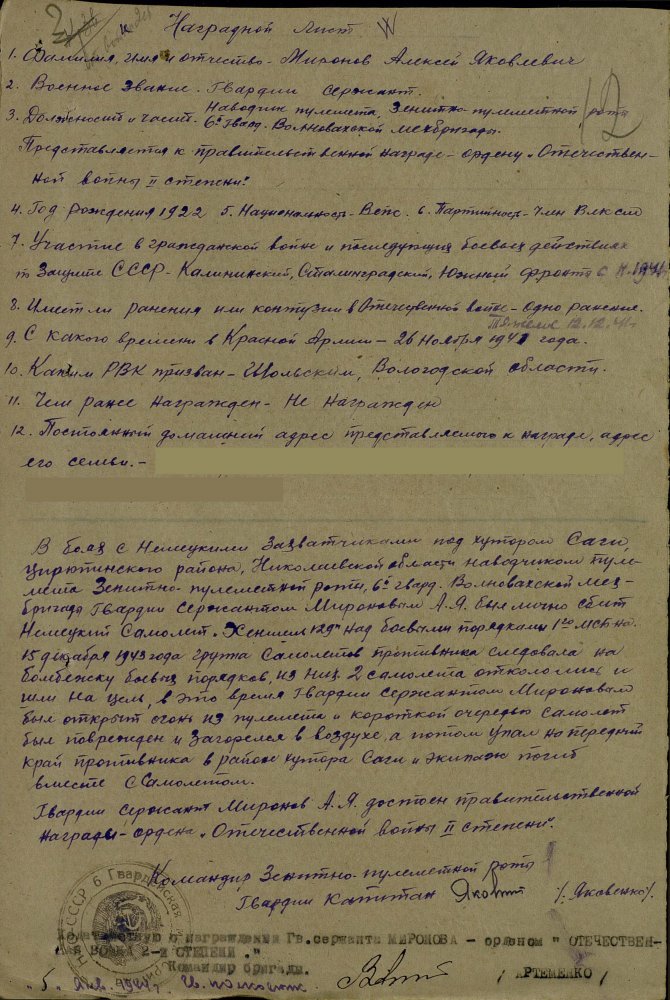 Наградной лист
1. Фамилия, имя и отчество - Миронов Алексей Яковлевич
2. Военное звание - Гвардии сержант.
3. Должность и часть - Наводчик пулемета, Зенитно-пулеметной роты
6й Гвард. Волновахской мехбригады.
Представляется к правительственной награде - ордену "Отечествен-
ной войны II степени".
4. Год рождения 1922 5. Национальность - Вепс. 6. Партийность - Член ВЛКСМ
7. Участие в гражданской войне и последующих боевых действиях
по Защите СССР - Калининский, Сталинградский, Южный фронта с
8. Имеет ли ранения или контузии в Отечественной войне - одно ранение.
Тяжелое 12.12.41г.
9. С какого времени в Красной Армии - 26 Ноября 1941 года.
10. Каким РВК призван - Шольским, Вологодской области.
11. Чем ранее награжден - Не награжден
12. Постоянный домашний адрес представляемого к награде, адрес
его семьи. -
В боях с Немецкими Захватчиками под хутором Саги,
Цирютинского района, Николаевской области наводчиком пуле-
мета Зенитно-пулеметной роты, 6й гвард. Волновахской мех-
бригады Гвардии Сержантом Мироновым А.Я. был лично сбит
Немецкий Самолет "Хеншель 129" над боевыми порядками 1го МСБ на
15 декабря 1943 года группа Самолетов противника следовала на
бомбежку боевых порядков, из них 2 самолета откололись и
шли на цель, в это время Гвардии Сержантом Мироновым
был открыт огонь из пулемета и короткой очередью самолет
был поврежден и Загорелся в воздухе, а потом упал на передний
край противника в районе хутора Саги и экипаж погиб
вместе с Самолетом.
Гвардии сержант Миронов А.Я. достоин правительственной
награды - ордена "Отечественной войны II степени".
Командир Зенитно-пулеметной роты
Гвардии Капитан /Яковенко/.
СССР 6 Гвардейская
Ходатайствую о награждении Гв.сержанта МИРОНОВА - орденом " ОТЕЧЕСТВЕН-
НАЯ ВОЙНА 2-й СТЕПЕНИ ."
Командир бригады.
"5" Янв. 1944 г. Гв. полковник / АРТЕМЕНКО /